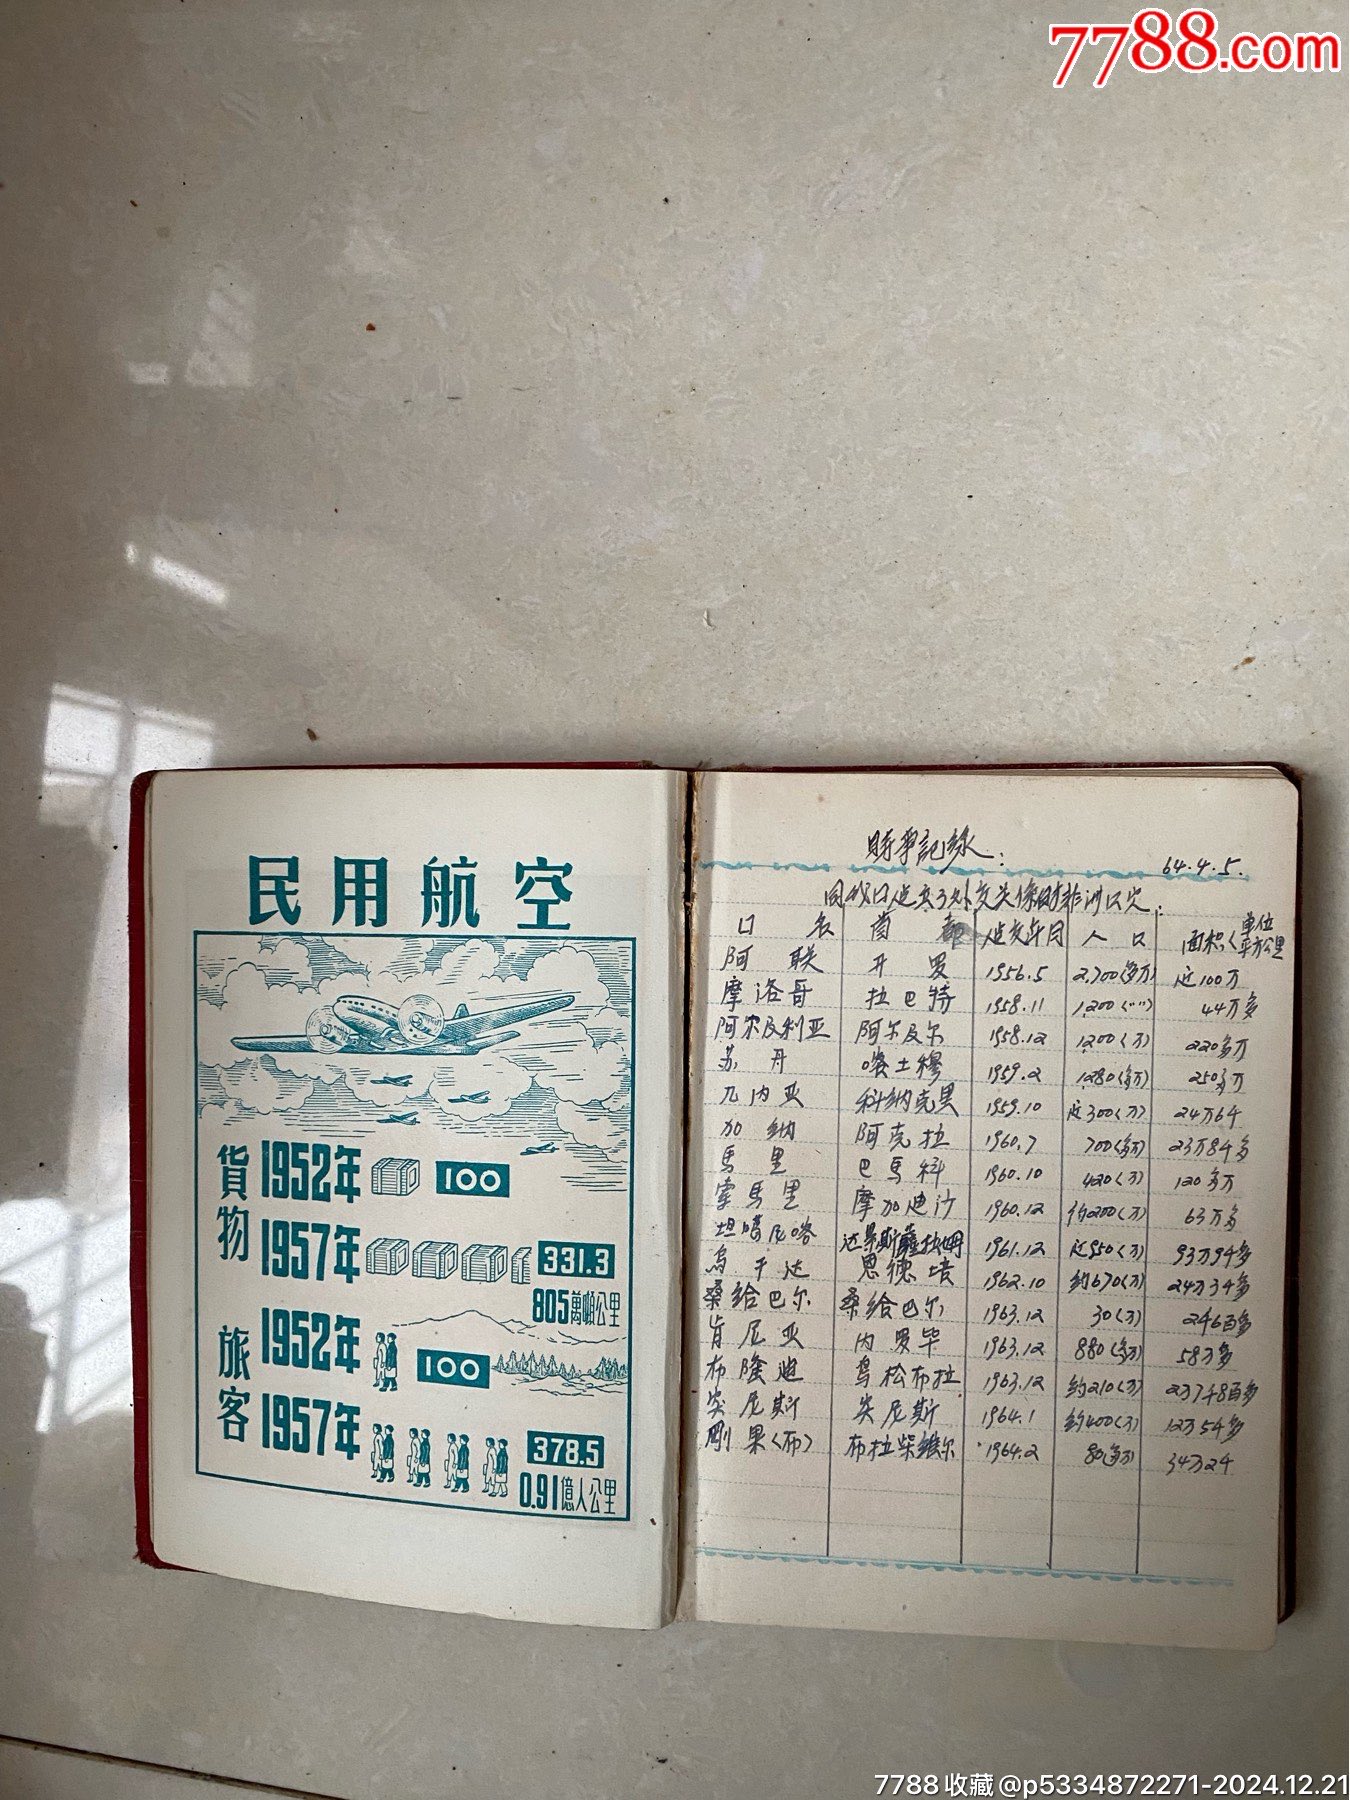 7788.com
民用航空
貨物
1952年 100
1957年 331.3
805萬噸公里
旅客
1952年 100
1957年 378.5
0.91億人公里
时事記录：
64.4.5.
同我口建立了外交关係的非洲口家：
口名 首都 建交年月 人口 面积〈单位平方公里
阿联 开罗 1956.5 2,700(多万) 近100万
摩洛哥 拉巴特 1958.11 1,200(〃〃) 44万多
阿尔及利亚 阿尔及尔 1958.12 1,200(万) 220多万
苏丹 喀土穆 1959.2 1,280(多万) 250多万
几内亚 科纳克里 1959.10 近300(万) 24万6千
加纳 阿克拉 1960.7 700(多万) 23万8千多
馬里 巴馬科 1960.10 420(万) 120多万
索馬里 摩加迪沙 1960.12 约200(万) 63万多
坦噶尼喀 达累斯薩拉姆 1961.12 近950(万) 93万9千多
烏干达 恩德培 1962.10 约670(万) 24万3千多
桑给巴尔 桑给巴尔 1963.12 30(万) 2千6百多
肯尼亚 内罗毕 1963.12 880(多万) 58万多
布隆迪 烏松布拉 1963.12 约210(万) 2万7千8百多
突尼斯 突尼斯 1964.1 约400(万) 12万5千多
剛果(布) 布拉柴維尔 1964.2 80(多万) 34万2千
7788收藏@p5334872271-2024.12.21